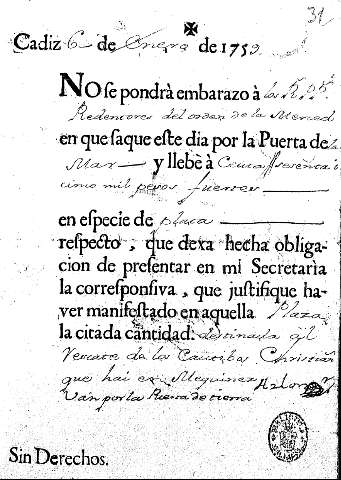 31
Cadiz 6 de Enero de 1752.
No se pondrà embarazo à los R. Ps.
Redemtores del orden de la Merced
en que saque este dia por la Puerta de la
Mar y llebe à Ceuta sesenta i
cinco mil pesos fuertes
en especie de plata
respecto, que dexa hecha obliga-
cion de presentar en mi Secretaria
la corresponsiva, que justifique ha-
ver manifestado en aquella Plaza
la citada cantidad: destinada al
Rescate de los Cautibos Christian
que hai en Mequinez
van por la Puerta de tierra
Sin Derechos.